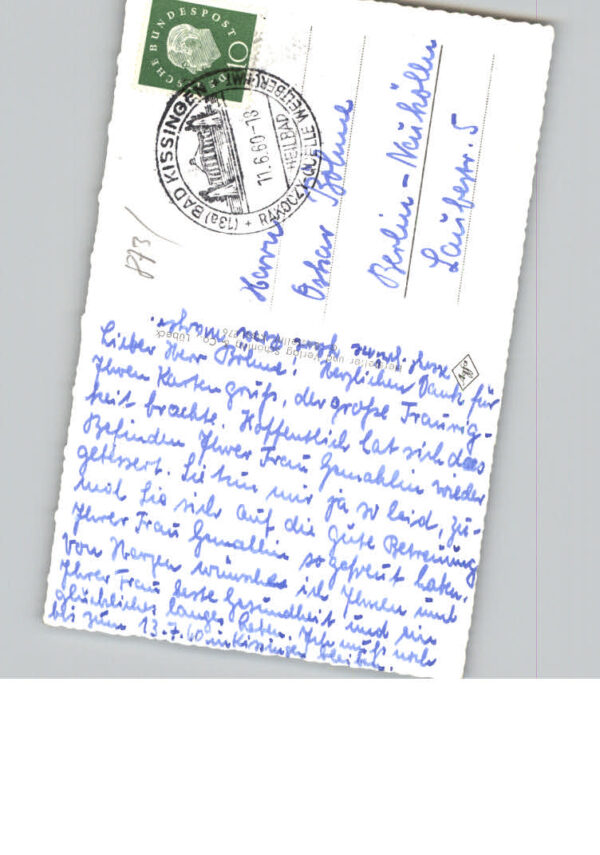 DEUTSCHE BUNDESPOST
10
(13a) BAD KISSINGEN
11.6.60-18
HEILBAD
RAKOCZY-QUELLE WELTBEKANNT
Herrn
Oskar Böhme
Berlin-Neukölln
Laubestr. 5
873/
Hersteller und Verlag Schöning & Co., Lübeck
Lieber Herr Böhme! Herzlichen Dank für
Ihren Kartengruß, der große Traurig-
keit brachte. Hoffentlich hat sich das
Befinden Ihrer Frau Gemahlin wieder
gebessert. Sie tun mir ja so leid, zu-
mal Sie sich auf die gute Betreuung
Ihrer Frau Gemahlin so gefreut haben.
Von Herzen wünsche ich Ihnen und
Ihrer Frau beste Gesundheit und ein
glückliches langes Leben. Ich muß noch
bis zum 13.7.60 in Kissingen bleiben.